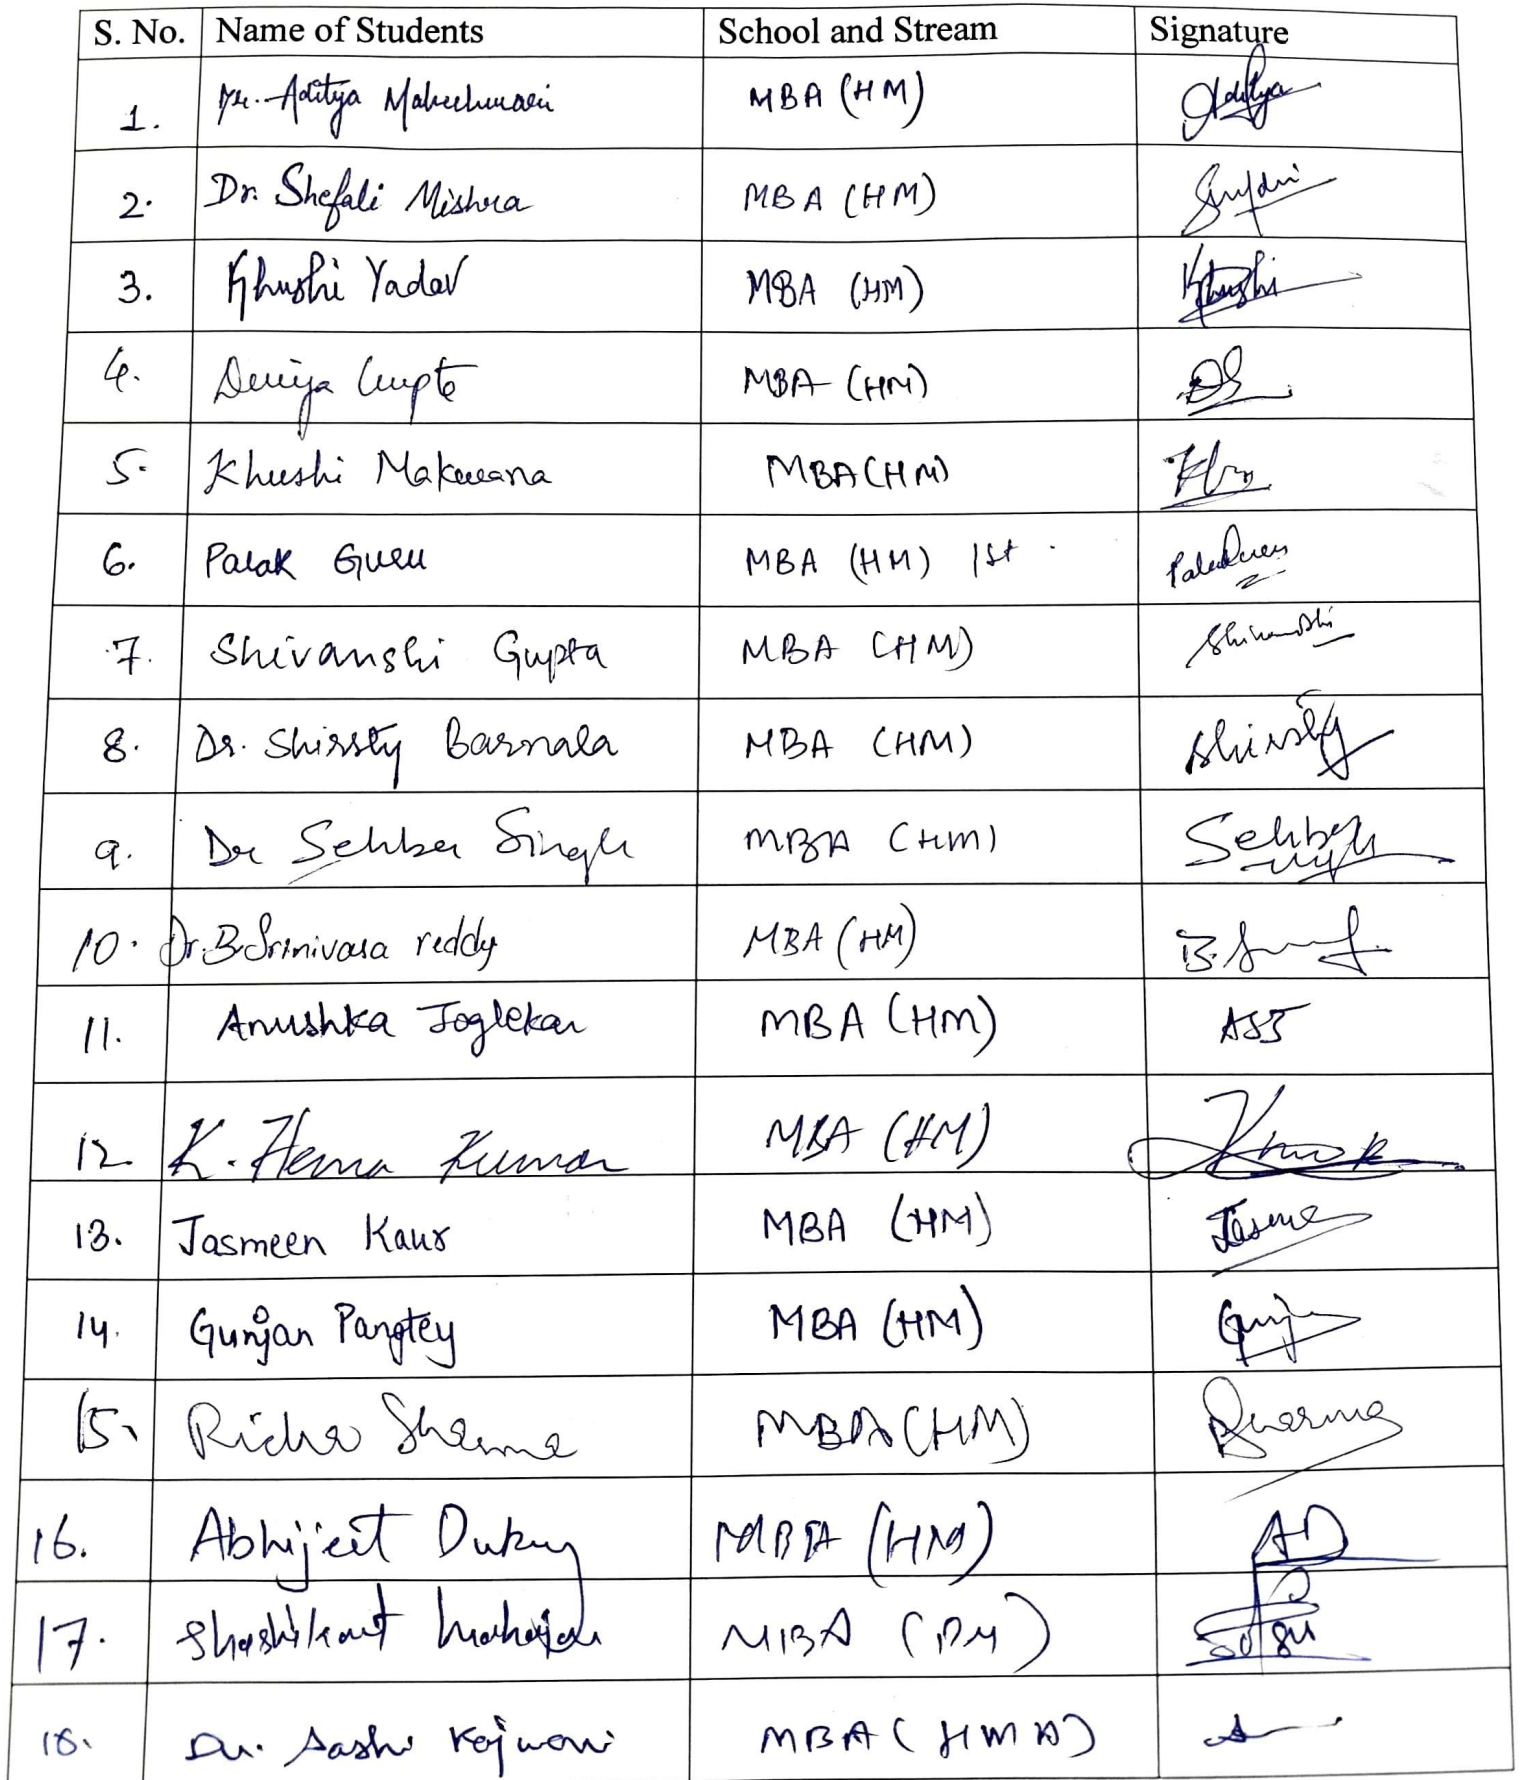 S. No. Name of Students School and Stream Signature
1. Dr. Aditya Maheshwari MBA (HM) Aditya
2. Dr. Shefali Mishra MBA (HM)
3. Khushi Yadav MBA (HM) Khushi
4. Gupta MBA (HM) DG
5. Khushi Makwana MBA (HM)
6. Palak Guru MBA (HM) 1st
7. Shivanshi Gupta MBA (HM) Shivanshi
8. Dr. Shirsty Barnala MBA (HM) Shirsty
9. Dr Sehber Singh MBA (HM) Sehber
10. Dr. B. Srinivasa reddy MBA (HM)
11. Anushka Joglekar MBA (HM) ASJ
12. K. Hema Kumar MBA (HM)
13. Jasmeen Kaur MBA (HM)
14. Gunjan Pangtey MBA (HM)
15. Richa Sharma MBA (HM)
16. Abhijeet MBA (HM) AD
17. Shashikant Mahajan MBA
18. Dr. Sashi MBA (